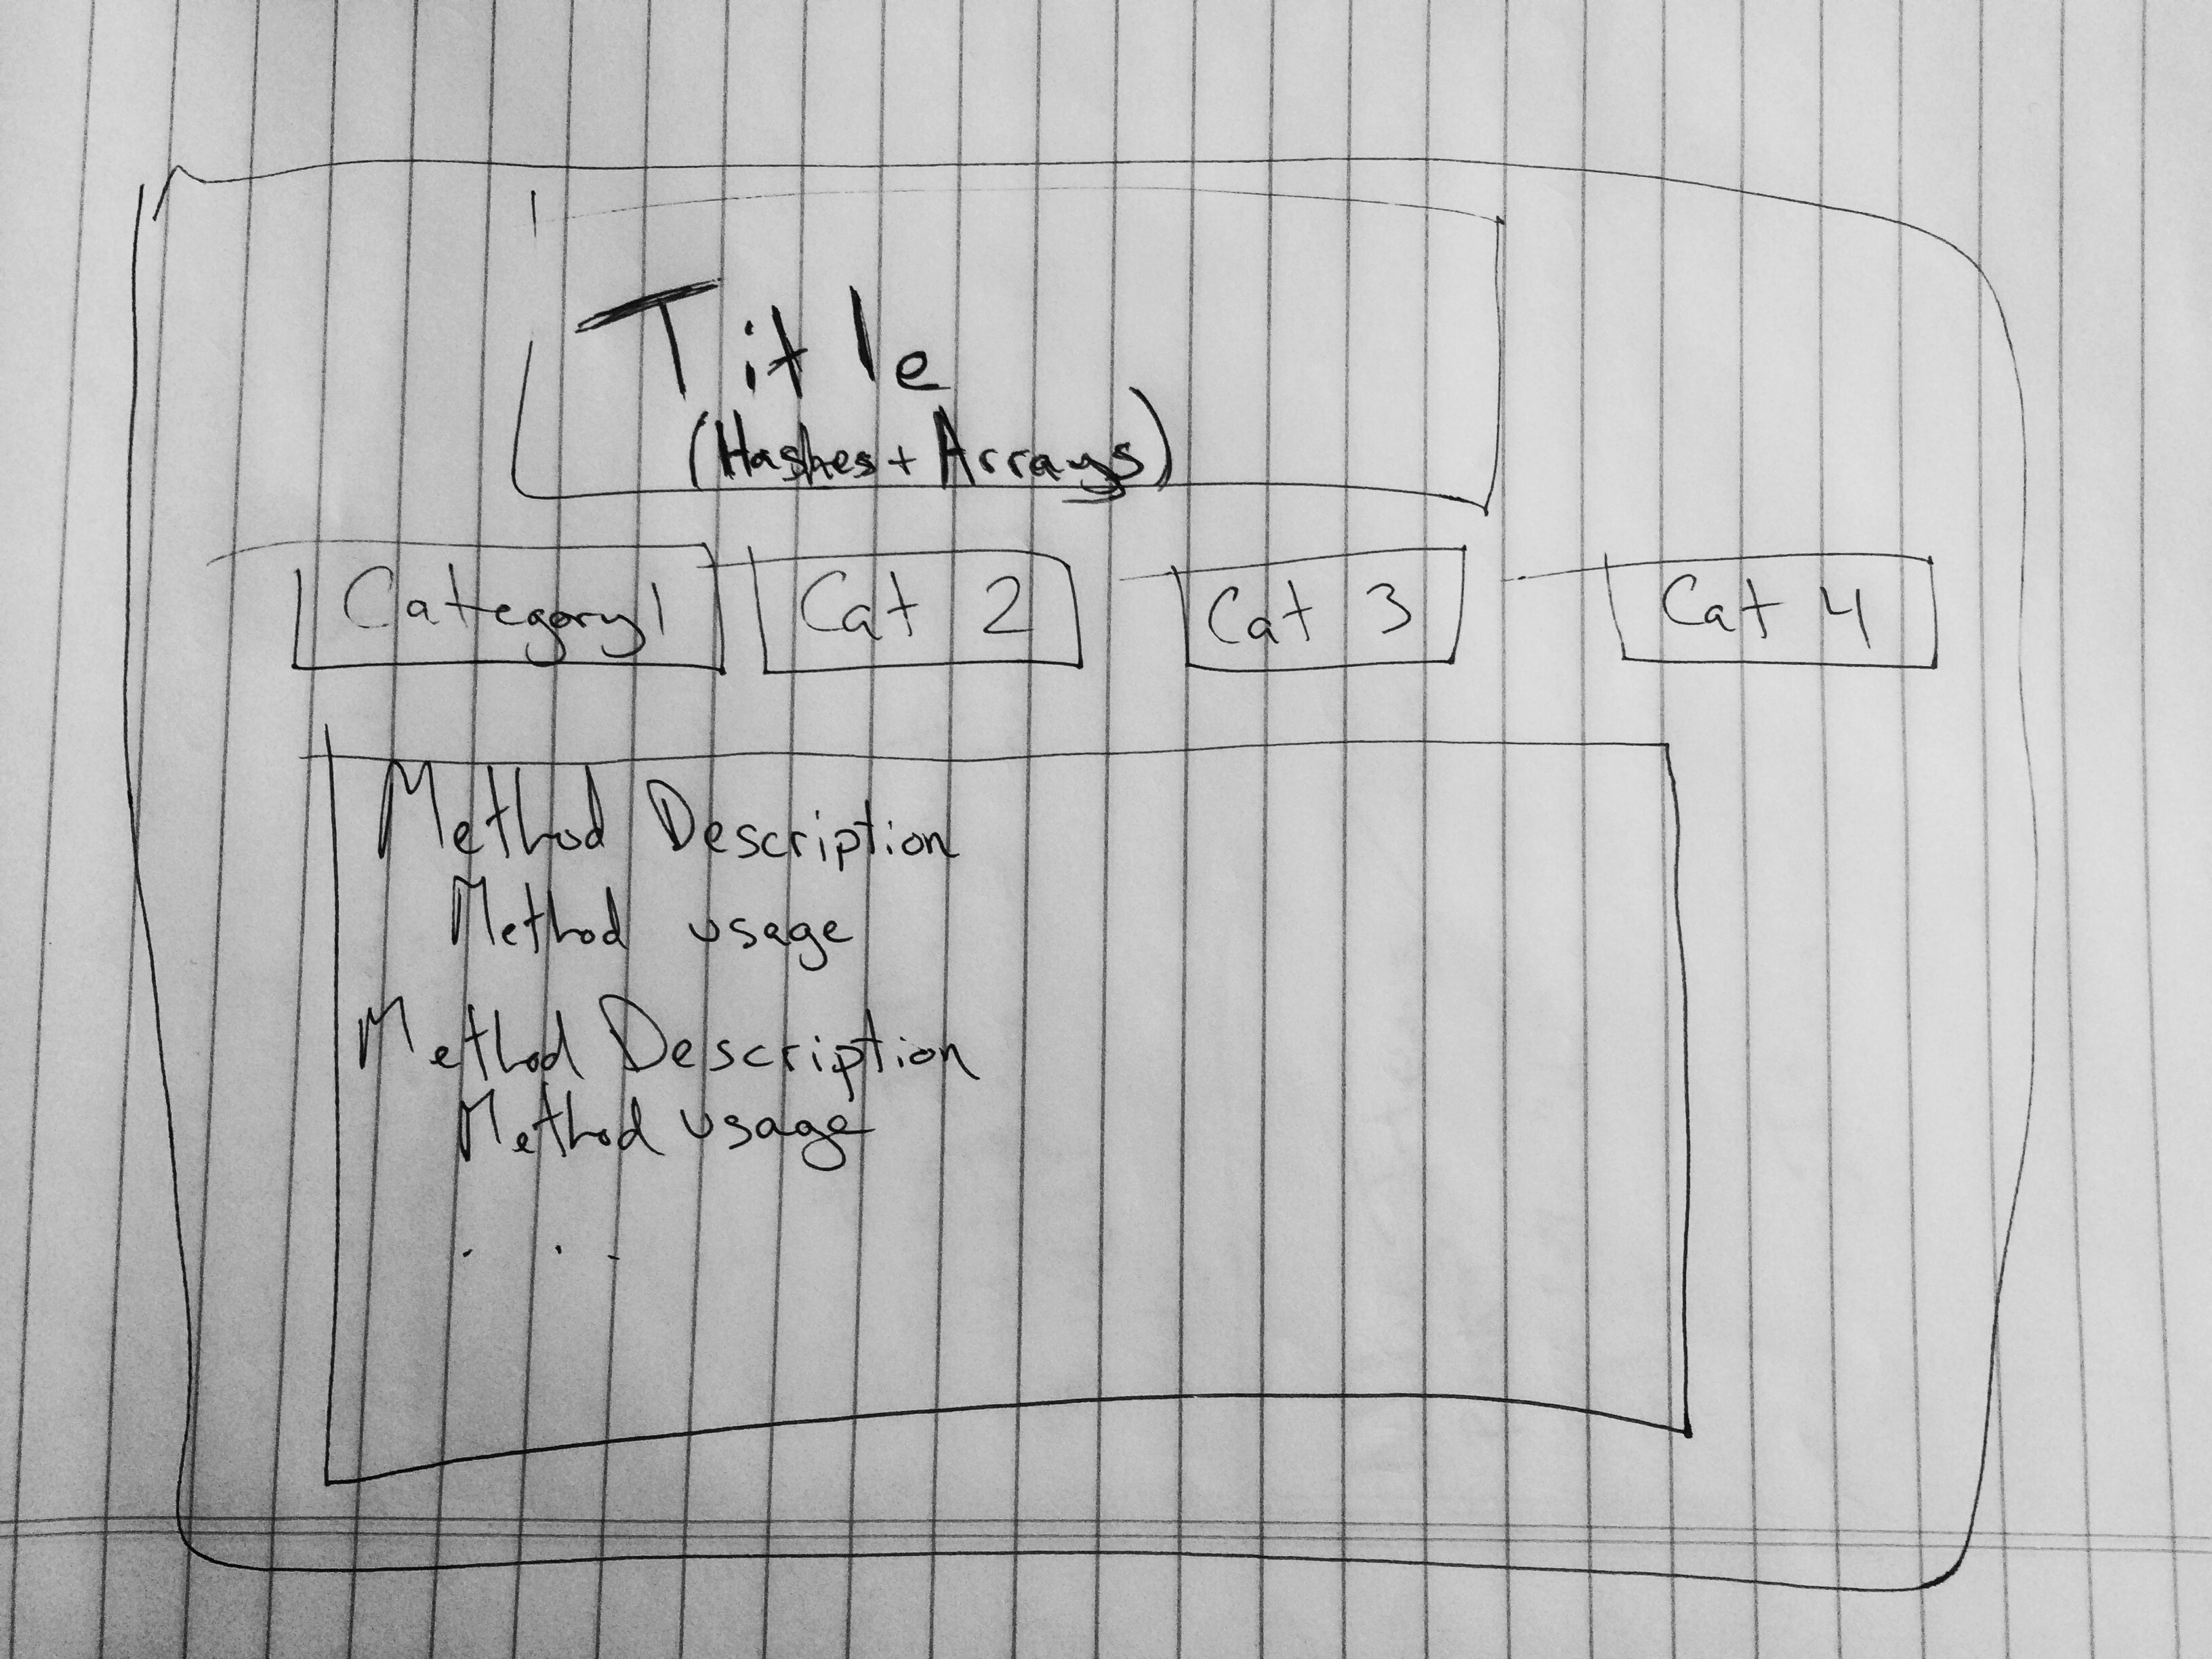 Title
(Hashes + Arrays)
Category 1
Cat 2
Cat 3
Cat 4
Method Description
Method usage
Method Description
Method usage
. . .